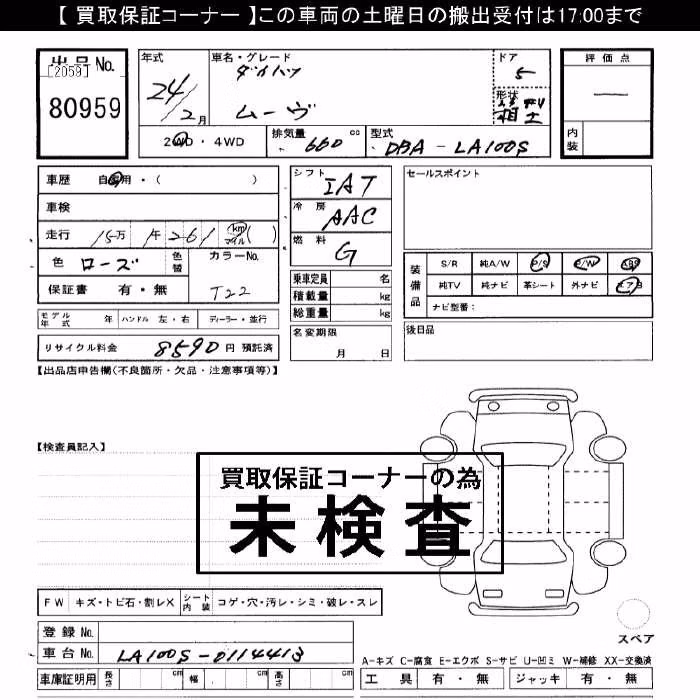 【 買取保証コーナー 】この車両の土曜日の搬出受付は17:00まで
出品 No.
[2059]
80959
年式 車名・グレード ドア 評価点
24/2月 ダイハツ 5
ムーヴ 形状 箱
2WD・4WD 排気量 660 cc 型式 DBA-LA100S 内装
車歴 自家用・( )
車検
走行 15万 1千261 km マイル ( )
色 ローズ 色替 カラーNo.
保証書 有・無 T22
シフト IAT
冷房 AAC
燃料 G
乗車定員 名
積載量 kg
総重量 kg
名変期限
月 日
セールスポイント
装備品 S/R 純A/W P/S P/W ABS
純TV 純ナビ 革シート 外ナビ エアB
ナビ型番:
後日品
モデル年式 年 ハンドル 左・右 ディーラー・並行
リサイクル料金 8590 円 預託済
【出品店申告欄(不良箇所・欠品・注意事項等)】
【検査員記入】
買取保証コーナーの為
未検査
FW キズ・トビ石・割レX シート内装 コゲ・穴・汚レ・シミ・破レ・スレ
スペア
登録 No.
車台 No. LA100S-0114413
A-キズ C-腐食 E-エクボ S-サビ U-凹ミ W-補修 XX-交換済
車庫証明用 長さ cm 幅 cm 高さ cm
工具 有・無 ジャッキ 有・無